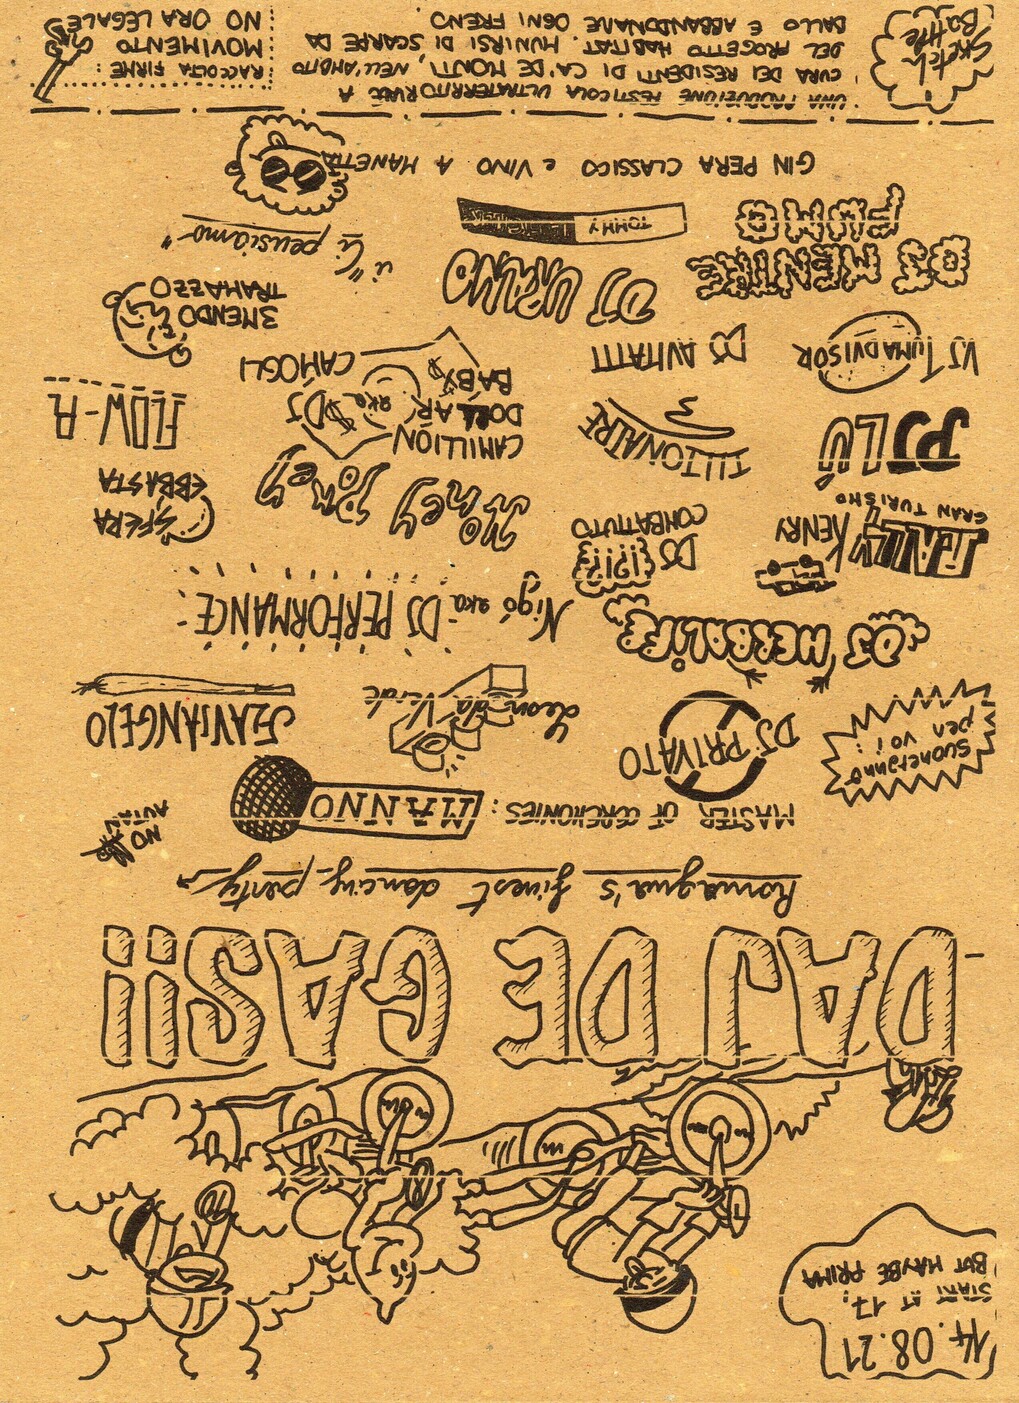 14.08.21
START AT 17:
BUT MAYBE PRIMA
DAJ DE GASii
Romagna's finest dancing party
MASTER OF CEREMONIES: MANNO
NO
AUTAN
suoneranno
per voi:
DJ PRIVATO
Leon da Verde
FLAVIANGELO
DJ HERBALIFE
Nigó aka DJ PERFORMANCE
RALLY KENRY
GRAN TURISMO 4
DJ !?!?
COMBATTUTO
MONEY PONEY
SFERA
EBBASTA
PJ LÚ
TIITONAIRE
CAMILLION
DOLLAR
BABY
aka
$DJ
CAMOGLI
FLOW-R
VJ TUMADVISOR
DJ AVITATTI
3MENDO
TRAMAZZO
DJ MENTRE
FUMO
DJ URANO
TOMMY
ú "Ci pensiamo"
GIN PERA CLASSICO e VINO A MANETTA
Sketch
Battle
UNA PRODUZIONE FESTICOLA ULTRATERRITORIALE A
CURA DEI RESIDENTI DI CA' DE MONTI, NELL'AMBITO
DEL PROGETTO HABITAT. MUNIRSI DI SCARPE DA
BALLO E ABBANDONARE OGNI FRENO
RACCOLTA FIRME:
MOVIMENTO
NO ORA LEGALE